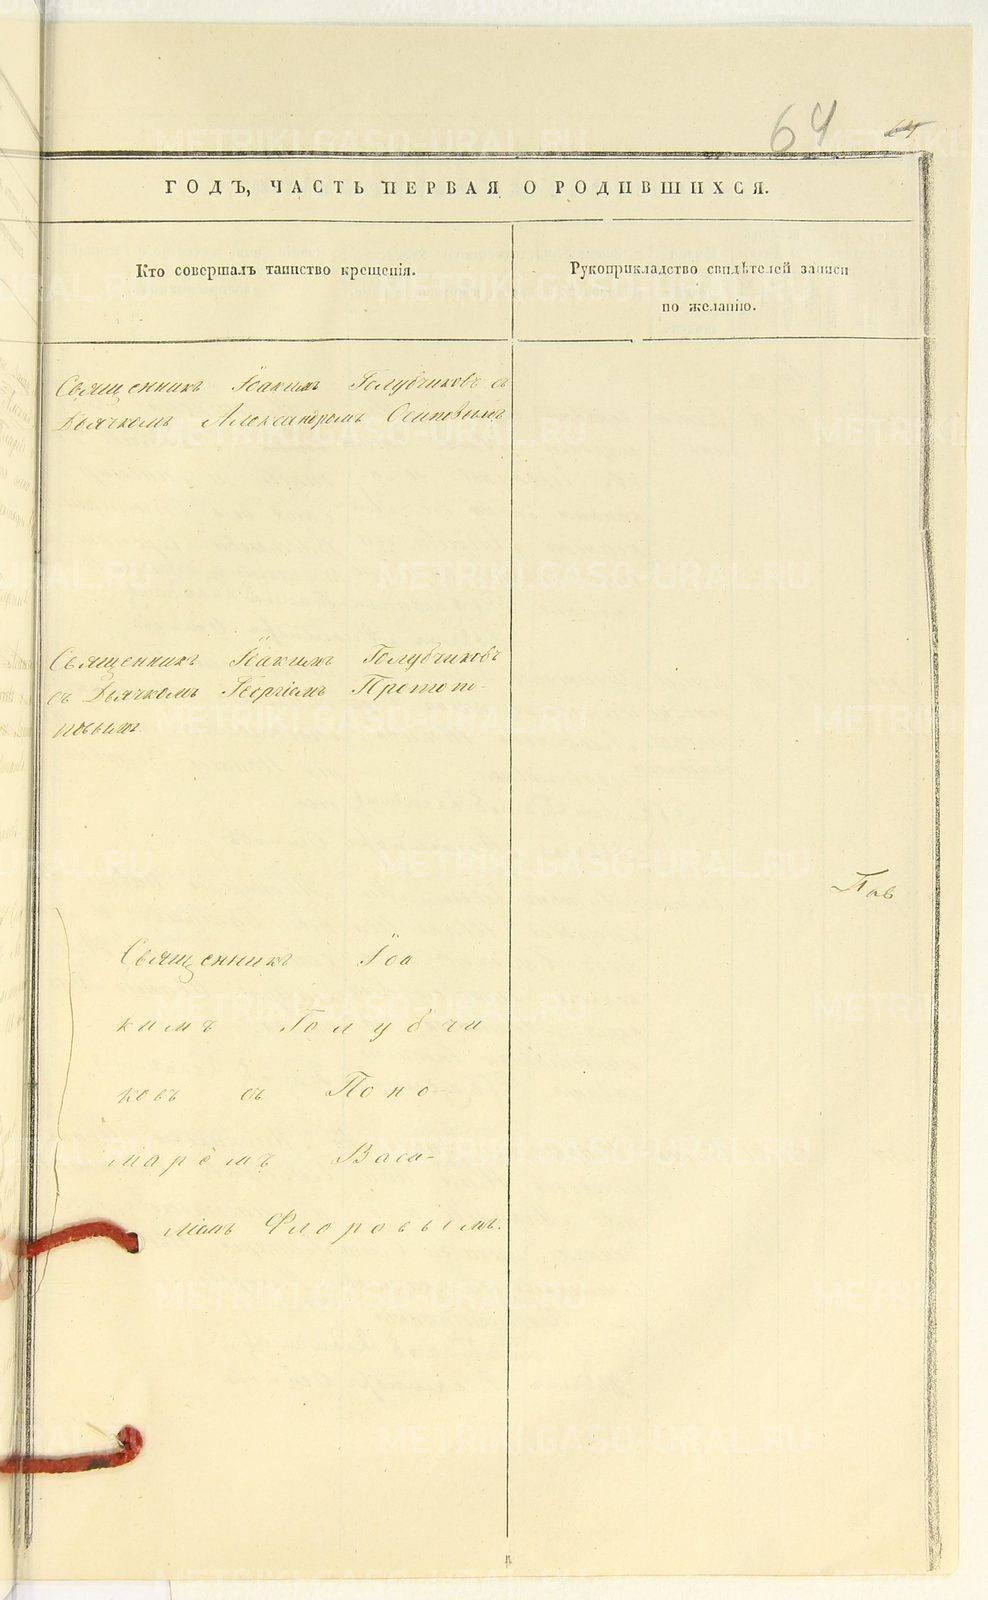 64
64
ГОДЪ, ЧАСТЬ ПЕРВАЯ О РОДИВШИХСЯ.
Кто совершалъ таинство крещенія.
Рукоприкладство свидѣтелей записи
по желанію.
Священникъ Іоакимъ Голубчиковъ съ
Дьячкомъ Александромъ Осиповымъ
Священникъ Іоакимъ Голубчиковъ
съ Дьячкомъ Георгіемъ Протопо-
повымъ
Пав
Священникъ Іоа
кимъ Голубчи
ковъ съ Поно-
марёмъ Васи-
ліемъ Флоровымъ.
METRIKI.GASO-URAL.RU